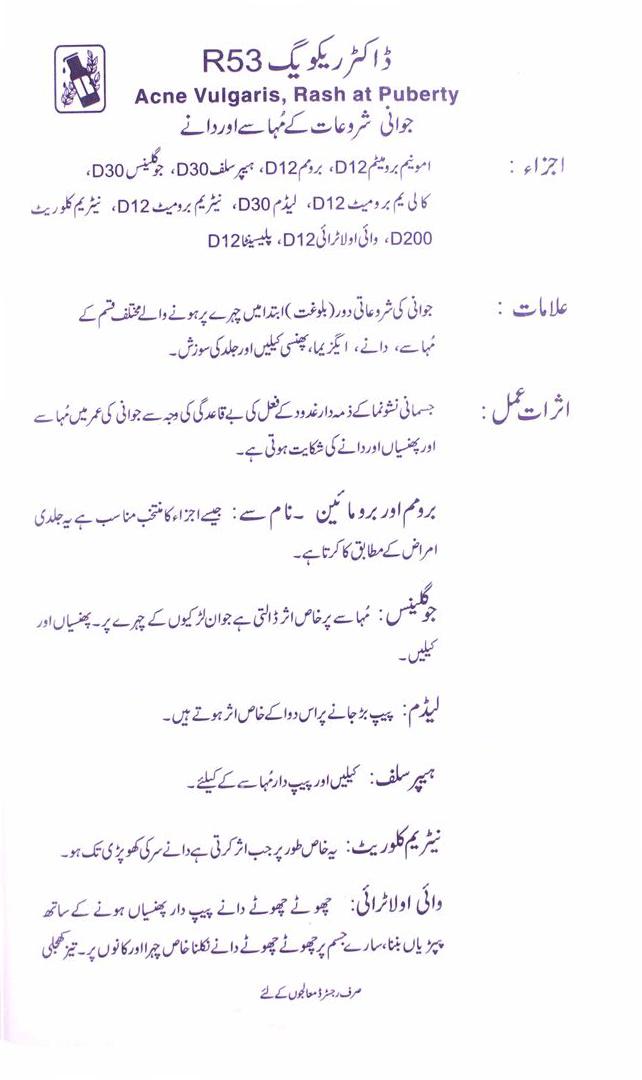 ڈاکٹر ریکویگ R53
Acne Vulgaris, Rash at Puberty
جوانی شروعات کے مُہاسے اور دانے
اجزاء : امونیم برومیٹم D12، برومم D12، ہیپر سلف D30، جوگلینس D30،
کالی یم برومیٹ D12، لیڈم D30، نیٹریم برومیٹ D12، نیٹریم کلوریٹ
D200، وائی اولاٹرائی D12، پلیسینٹا D12
علامات : جوانی کی شروعاتی دور (بلوغت) ابتدا میں چہرے پر ہونے والے مختلف قسم کے
مُہاسے، دانے، ایگزیما، پھنسی کیلیں اور جلد کی سوزش۔
اثرات عمل : جسمانی نشونما کے ذمہ دار غدود کے فعل کی بے قاعدگی کی وجہ سے جوانی کی عمر میں مُہاسے
اور پھنسیاں اور دانے کی شکایت ہوتی ہے۔
برومم اور برومائین ۔ نام سے : جیسے اجزاء کا منتخب مناسب ہے یہ جلدی
امراض کے مطابق کا کرتا ہے۔
جوگلینس : مُہاسے پر خاص اثر ڈالتی ہے جوان لڑکیوں کے چہرے پر۔ پھنسیاں اور
کیلیں۔
لیڈم : پیپ بڑ جانے پر اس دوا کے خاص اثر ہوتے ہیں۔
ہیپر سلف : کیلیں اور پیپ دار مُہاسے کے کیلئے۔
نیٹریم کلوریٹ : یہ خاص طور پر جب اثر کرتی ہے دانے سر کی کھوپڑی تک ہو۔
وائی اولاٹرائی : چھوٹے چھوٹے دانے پیپ دار پھنسیاں ہونے کے ساتھ
پپڑیاں بننا، سارے جسم پر چھوٹے چھوٹے دانے نکلنا خاص چہرا اور کانوں پر۔ تیز کھجلی
صرف رجسٹرڈ معالجوں کے لئے